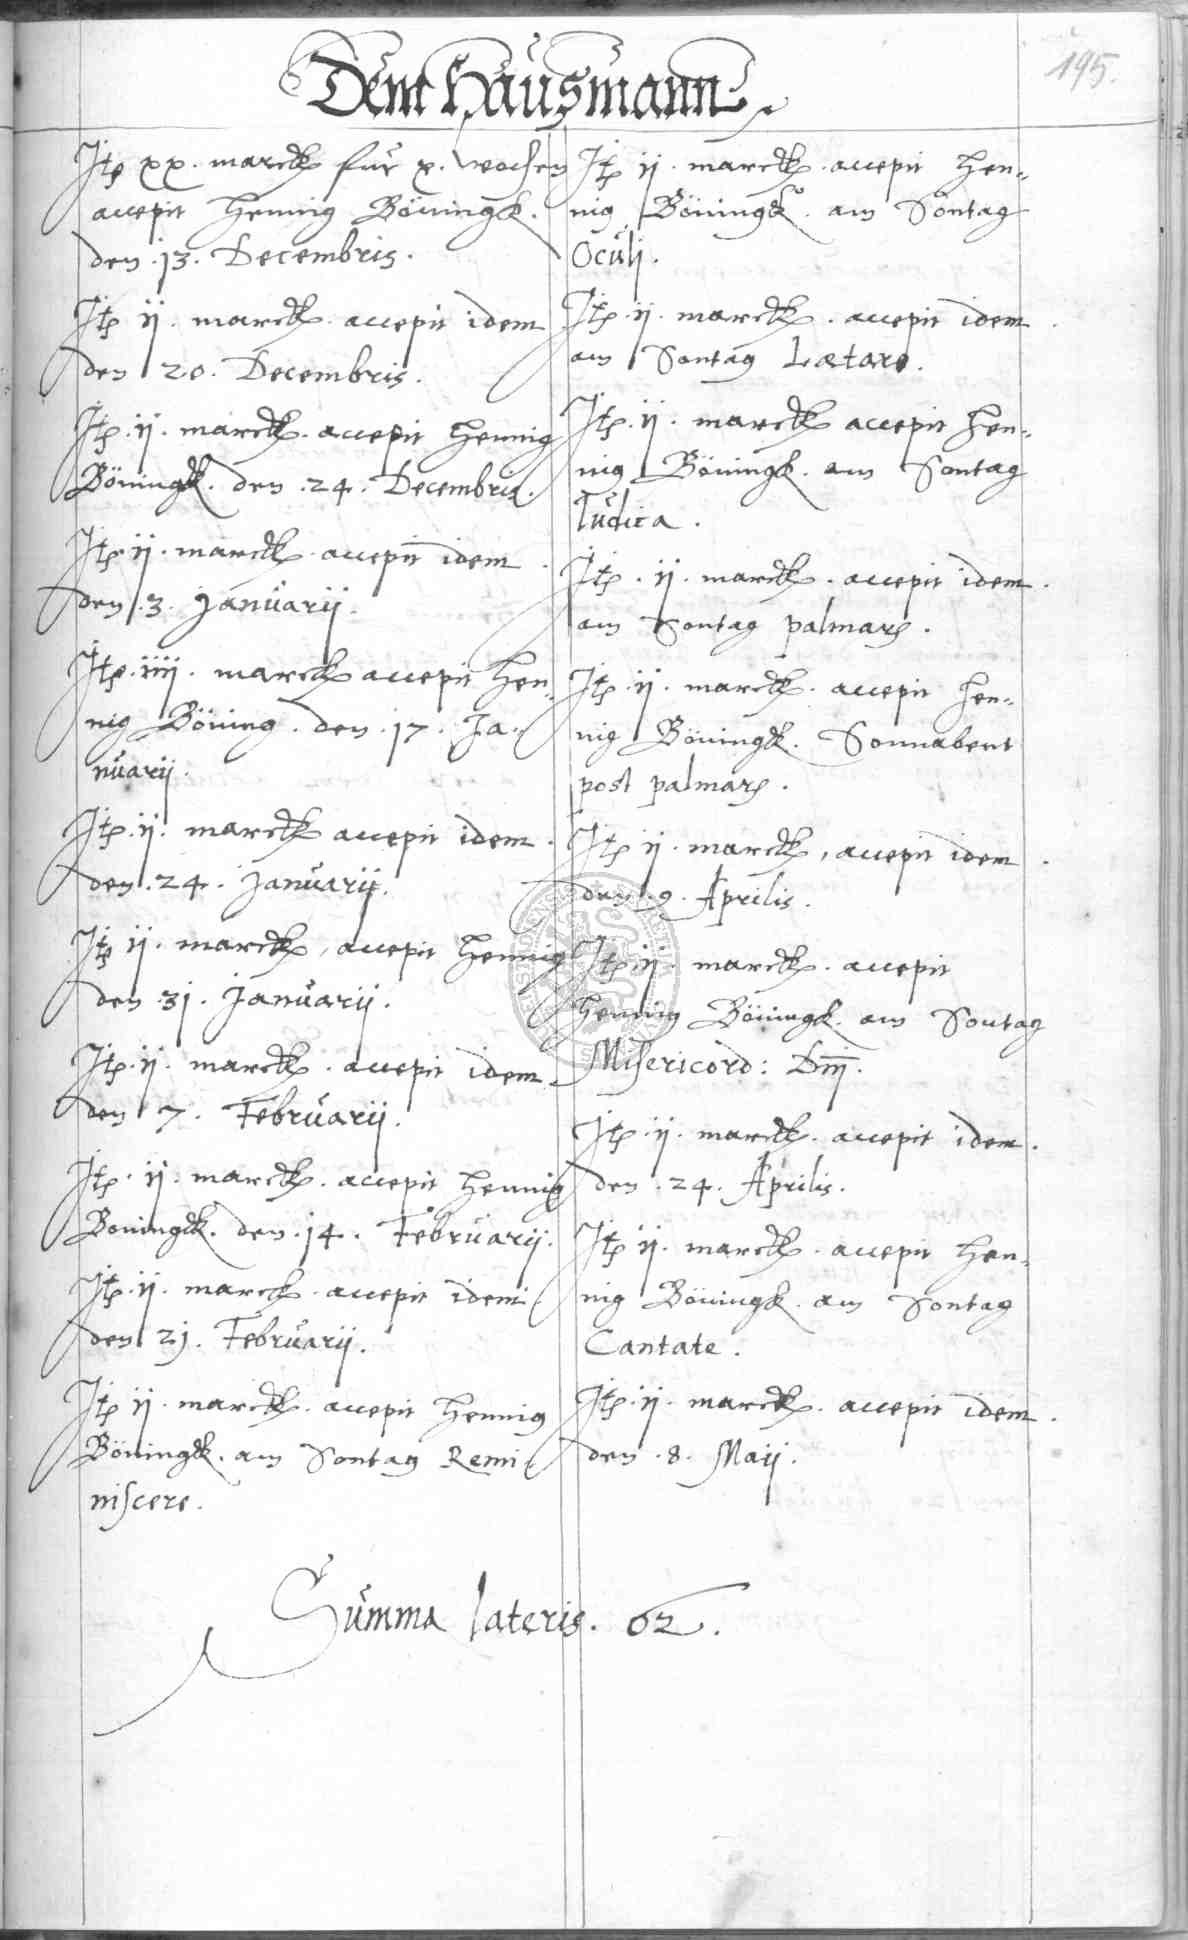 195.
Dem Hausmann
Itē xx. marck für x. wochen
accepit Hennig Böningk.
den .13. Decembris.
Itē ij. marck. accepit idem
den 20. Decembris.
Itē .ij. marck. accepit Hennig
Böningk. den .24. Decembris.
Itē ij. marck. accepit idem
den .3. Januarij.
Itē .iiij. marck accepit Hen-
nig Böning. den .17. Ja-
nuarij.
Itē .ij. marck accepit idem.
den .24. Januarij.
Itē ij. marck, accepit Hennig
den .31. Januarij.
Itē .ij. marck. accepit idem
den 7. Februarij.
Itē. ij. marck. accepit Hennig
Boningk. den .14. Februarij.
Itē .ij. marck. accepit idem
den 21. Februarij.
Itē ij. marck. accepit Hennig
Böningk. am Sontag Remi-
niscere.
Itē ij. marck. accepit Hen-
nig Böningk. am Sontag
Oculj.
Itē .ij. marck. accepit idem.
am Sontag Lætare.
Itē .ij. marck accepit Hen-
nig Böningk. am Sontag
Iudica.
Itē. ij. marck. accepit idem.
am Sontag palmarū.
Itē .ij. marck. accepit Hen-
nig Böningk. Sonnabent
post palmarū.
Itē ij. marck, accepit idem.
den .9. Aprilis.
Itē ij. marck. accepit
Hennig Böningk. am Sontag
Misericord: Dnī.
Itē .ij. marck. accepit idem.
den .24. Aprilis.
Itē ij. marck. accepit Hen-
nig Böningk. am Sontag
Cantate.
Itē .ij. marck. accepit idem.
den .8. Maij.
Summa lateris. 62.